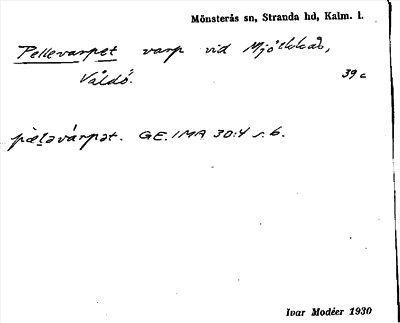 Mönsterås sn, Stranda hd, Kalm. l.
Pellevarpet varp vid Mjölkkas,
Våldö.
39 c
pæ̀ləvárpət. GE. IMA 30:4 s. 6.
Ivar Modéer 1930